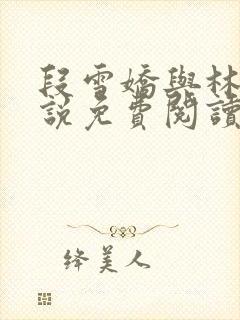 段雪嬌與林
說免費閱讀
绛美人